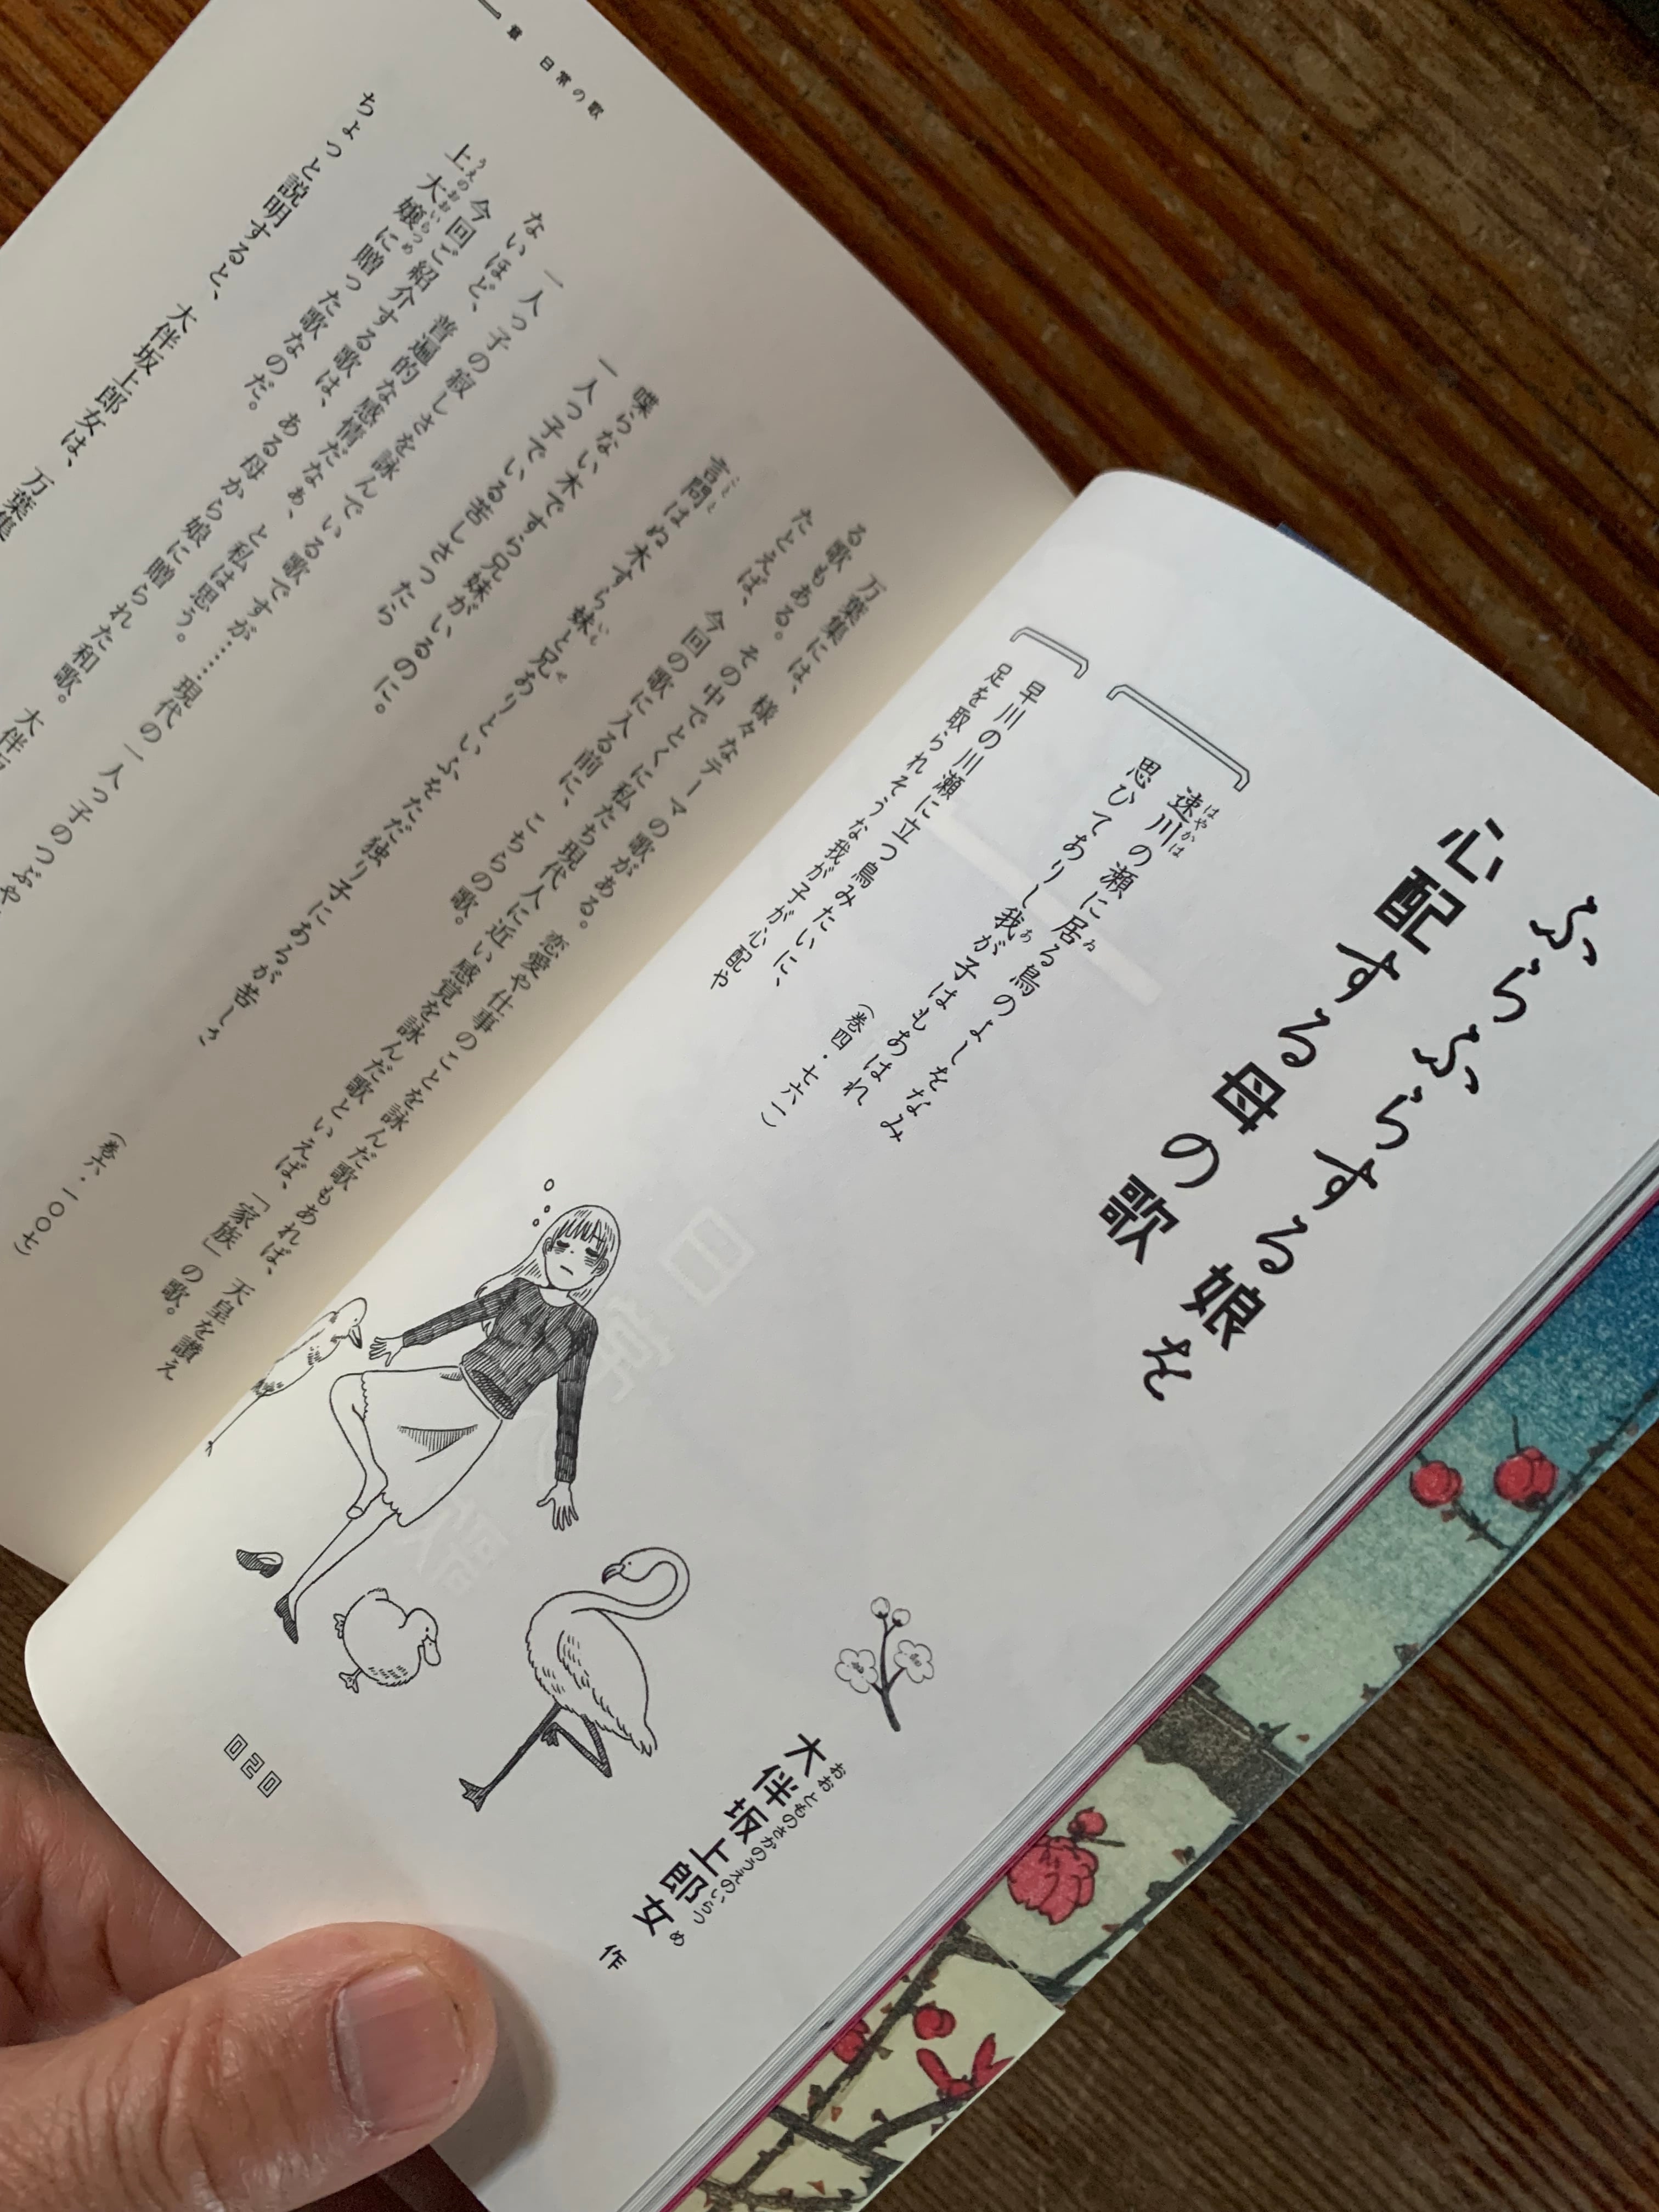 ふらふらする娘を
心配する母の歌
大伴坂上郎女 作
おおとものさかのうえのいらつめ
速川の瀬に居る鳥のよしをなみ
はやかは
ゐ
思ひてありし我が子はもあはれ
あ
（巻四・七六一）
早川の川瀬に立つ鳥みたいに、
足を取られそうな我が子が心配や
020
万葉集には、様々なテーマの歌がある。恋愛や仕事のことを詠んだ歌もあれば、天皇を讃え
る歌もある。その中でとくに私たち現代人に近い感覚を詠んだ歌といえば、「家族」の歌。
たとえば、今回の歌に入る前に、こちらの歌。
言問はぬ木すら妹と兄ありといふをただ独り子にあるが苦しさ
（巻六・一〇〇七）
喋らない木ですら兄妹がいるのに。
一人っ子でいる苦しさったら
一人っ子の寂しさを詠んでいる歌ですが……現代の一人っ子のつぶや
ないほど、普遍的な感情だなぁ、と私は思う。
今回ご紹介する歌は、ある母から娘に贈られた和歌。大伴
上大嬢に贈った歌なのだ。
うえのおおいらつめ
ちょっと説明すると、大伴坂上郎女は、万葉集
一章 日常の歌